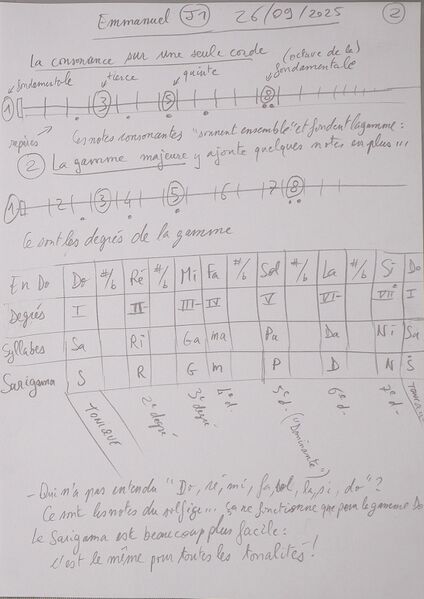 Emmanuel J1 26/09/2025 2
La consonance sur une seule corde
fondamentale tierce quinte (octave de la) fondamentale
1 3 5 8
repères Ces notes consonantes "sonnent ensemble" et fondent la gamme :
2 La gamme majeure y ajoute quelques notes en plus...
1 2 3 4 5 6 7 8
Ce sont les degrés de la gamme
En Do Do #/b Ré #/b Mi Fa #/b Sol #/b La #/b Si Do
Degrés I II- III- IV V VI- VII I
Syllabes Sa Ri Ga ma Pa Da Ni Sa
Sarigama S R G m P D N Ṡ
TONIQUE 2e degré 3e degré 4e d. 5e d. ("Dominante") 6e d. 7e d. TONIQUE
- Qui n'a pas entendu "Do, ré, mi, fa, sol, la, si, do" ?
Ce sont les notes du solfège... ça ne fonctionne que pour la gamme Do
Le Sarigama est beaucoup plus facile :
c'est le même pour toutes les tonalités !